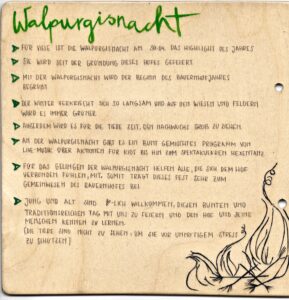 Walpurgisnacht
FÜR VIELE IST DIE WALPURGISNACHT AM 30.04. DAS HIGHLIGHT DES JAHRES
SIE WIRD SEIT DER GRÜNDUNG DIESES HOFES GEFEIERT.
MIT DER WALPURGISNACHT WIRD DER BEGINN DES BAUERNHOFJAHRES
BEGRÜßT
DER WINTER VERKRIECHT SICH SO LANGSAM UND AUF DEN WIESEN UND FELDERN
WIRD ES IMMER GRÜNER.
AUßERDEM WIRD ES FÜR DIE TIERE ZEIT, DEN NACHWUCHS GROß ZU ZIEHEN.
AN DER WALPURGISNACHT GIBT ES EIN BUNT GEMISCHTES PROGRAMM VON
LIVE-MUSIK ÜBER AKTIONEN FÜR KIDS BIS HIN ZUM SPEKTAKULÄREN HEXENTANZ.
FÜR DAS GELINGEN DER WALPURGISNACHT HELFEN ALLE, DIE SICH DEM HOF
VERBUNDEN FÜHLEN, MIT. SOMIT TRÄGT DIESES FEST SEHR ZUM
GEMEINWESEN DES BAUERNHOFES BEI.
JUNG UND ALT SIND HERZLICH WILLKOMMEN, DIESEN BUNTEN UND
TRADITIONSREICHEN TAG MIT UNS ZU FEIERN UND DEN HOF UND SEINE
MENSCHEN KENNEN ZU LERNEN.
(DIE TIERE SIND NICHT ZU SEHEN, UM SIE VOR UNNÖTIGEM STRESS
ZU SCHÜTZEN)